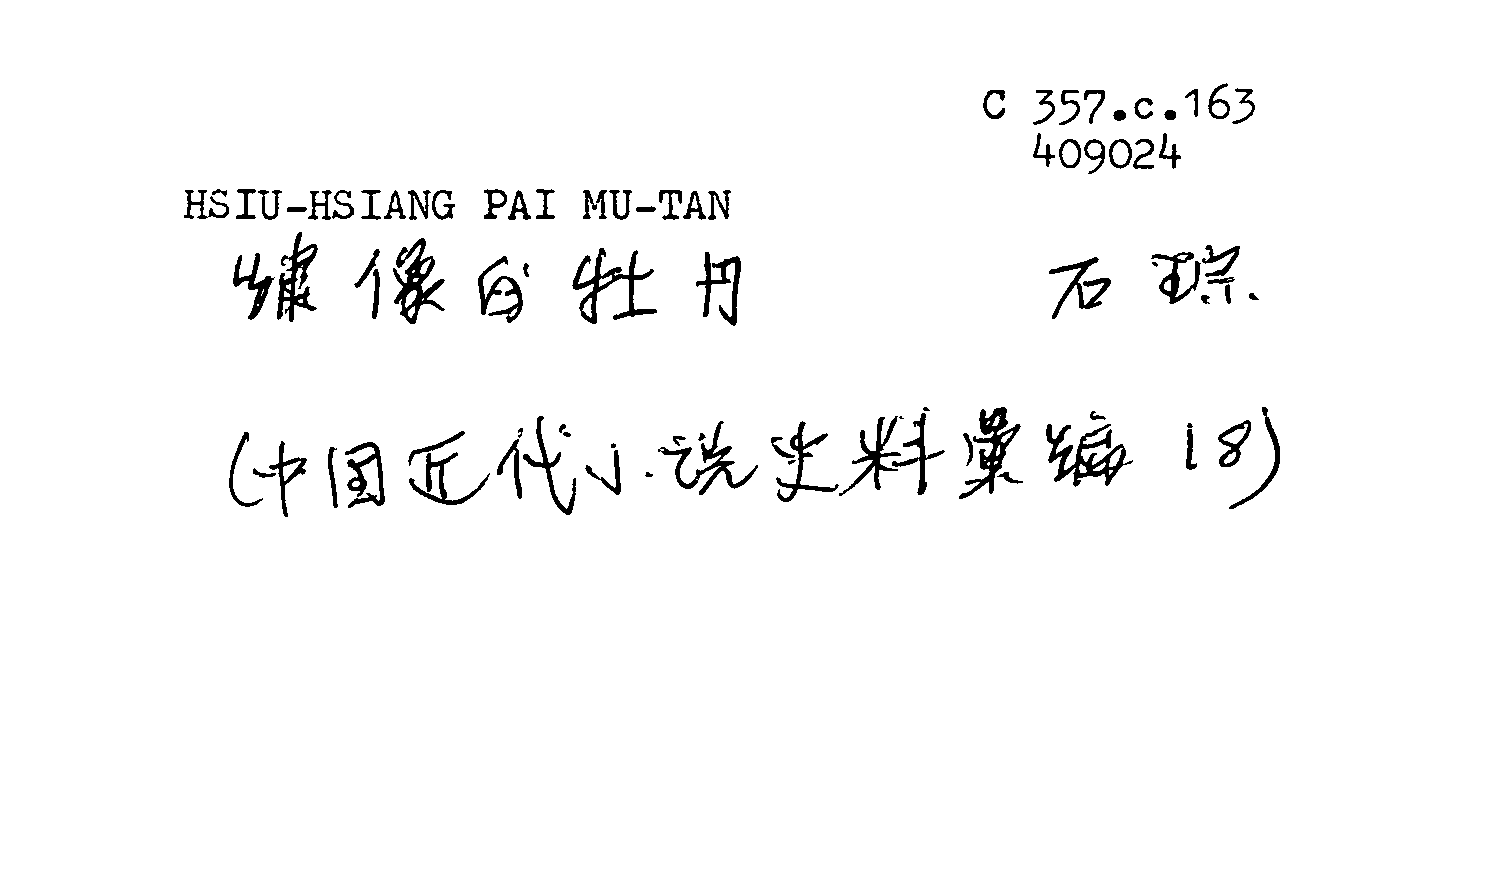 C 357.c.163
409024
HSIU-HSIANG PAI MU-TAN
繡像白牡丹 石琮
(中国近代小说史料彙編 18)